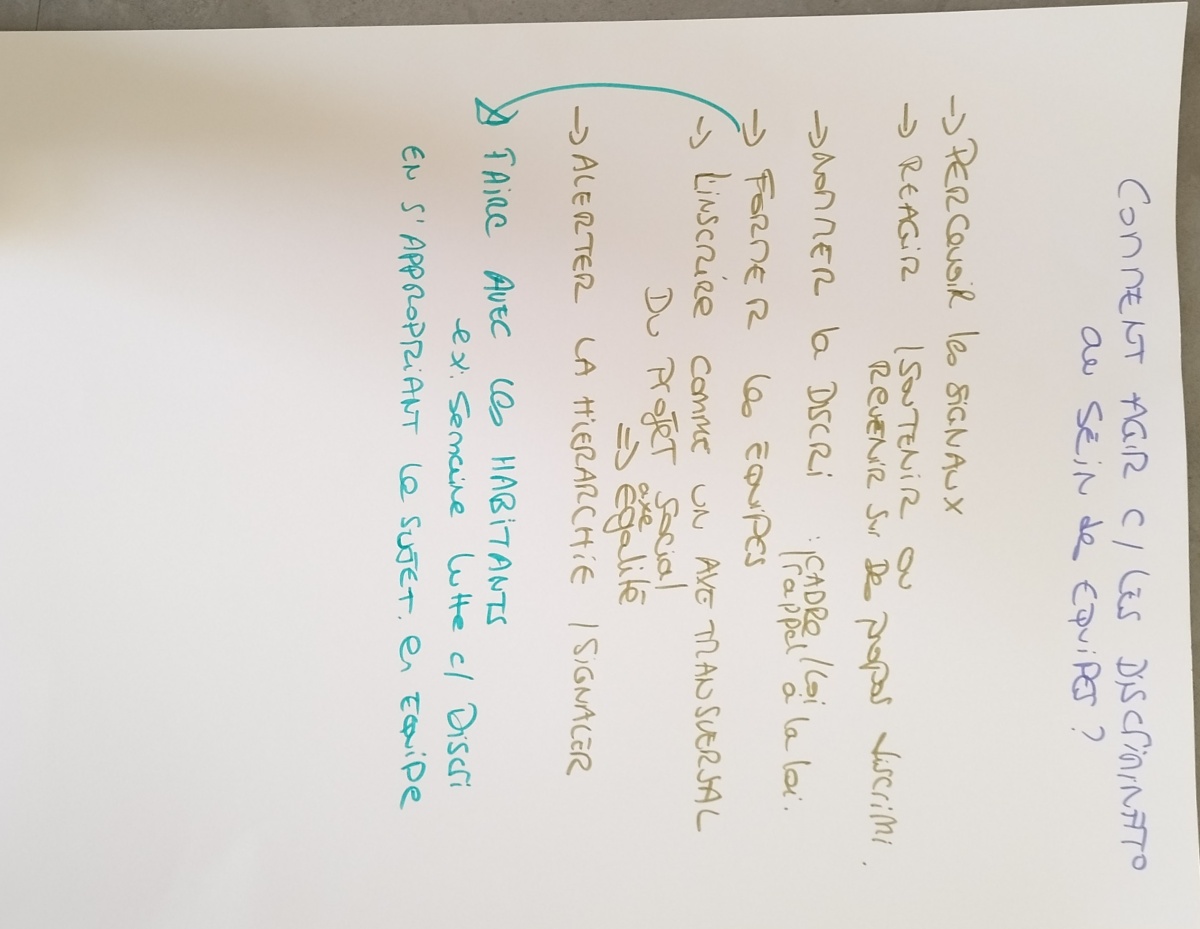 COMMENT AGIR C/ LES DISCRIMINATIO
au SEIN de EQUIPES ?
→ PERCEVOIR les SIGNAUX
→ REAGIR / SOUTENIR ou
REVENIR sur De propos discrimi.
→ NOMMER la DISCRI : CADRE / Loi
/ rappel à la loi.
→ FORMER les EQUIPES
→ L'inscrire COMME UN AXE TRANSVERSAL
Du PROJET Social
⇒ axe Egalité
→ ALERTER LA HIERARCHIE / SIGNALER
FAIRE AVEC les HABITANTS
ex: Semaine lutte c/ Discri
EN S'APPROPRIANT le SUJET en EQUIPE